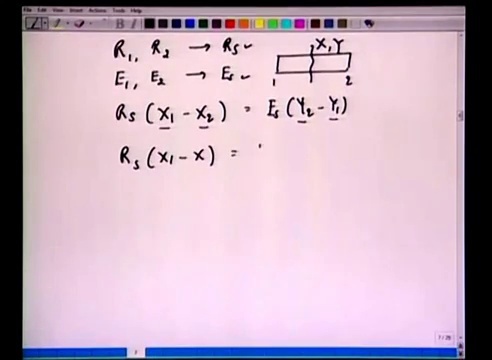 File Edit View Insert Actions Tools Help
R₁, R₂ → Rs ✓
X, Y
E₁, E₂ → Es ✓
1 2
Rs (X₁ - X₂) = Es (Y₂ - Y₁)
Rs (X₁ - X) =
7